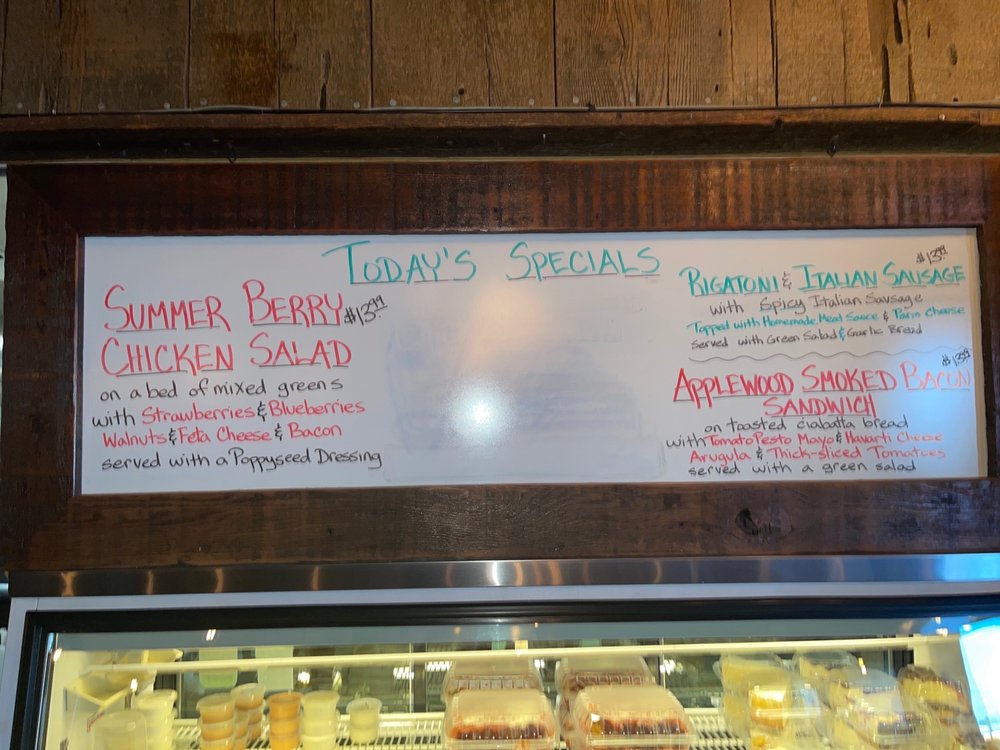 TODAY'S SPECIALS
SUMMER BERRY $13.99
CHICKEN SALAD
on a bed of mixed greens
with Strawberries & Blueberries
Walnuts & Feta Cheese & Bacon
served with a Poppyseed Dressing
$13.99
RIGATONI & ITALIAN SAUSAGE
with Spicy Italian Sausage
Topped with Homemade Meat Sauce & Parm Cheese
served with Green Salad & Garlic Bread
$13.99
APPLEWOOD SMOKED BACON
SANDWICH
on toasted ciabatta bread
with Tomato Pesto Mayo & Havarti Cheese
Arugula & Thick-sliced Tomatoes
served with a green salad